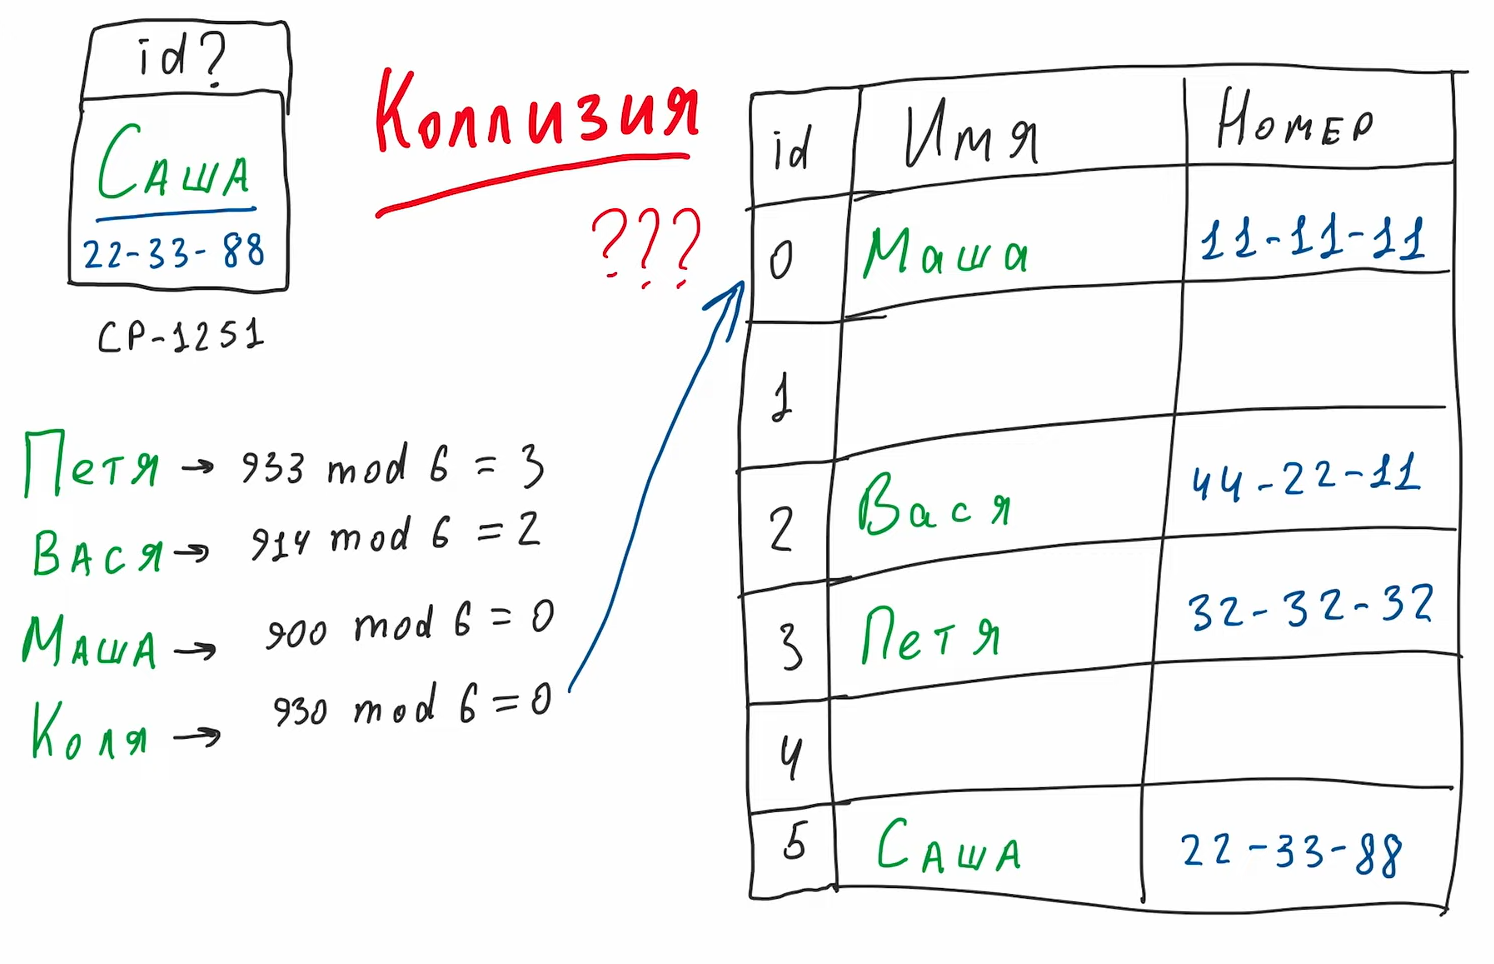 id?
Саша
22-33-88
CP-1251
Коллизия
???
Петя → 933 mod 6 = 3
Вася → 914 mod 6 = 2
Маша → 900 mod 6 = 0
Коля → 930 mod 6 = 0
id Имя Номер
0 Маша 11-11-11
1
2 Вася 44-22-11
3 Петя 32-32-32
4
5 Саша 22-33-88